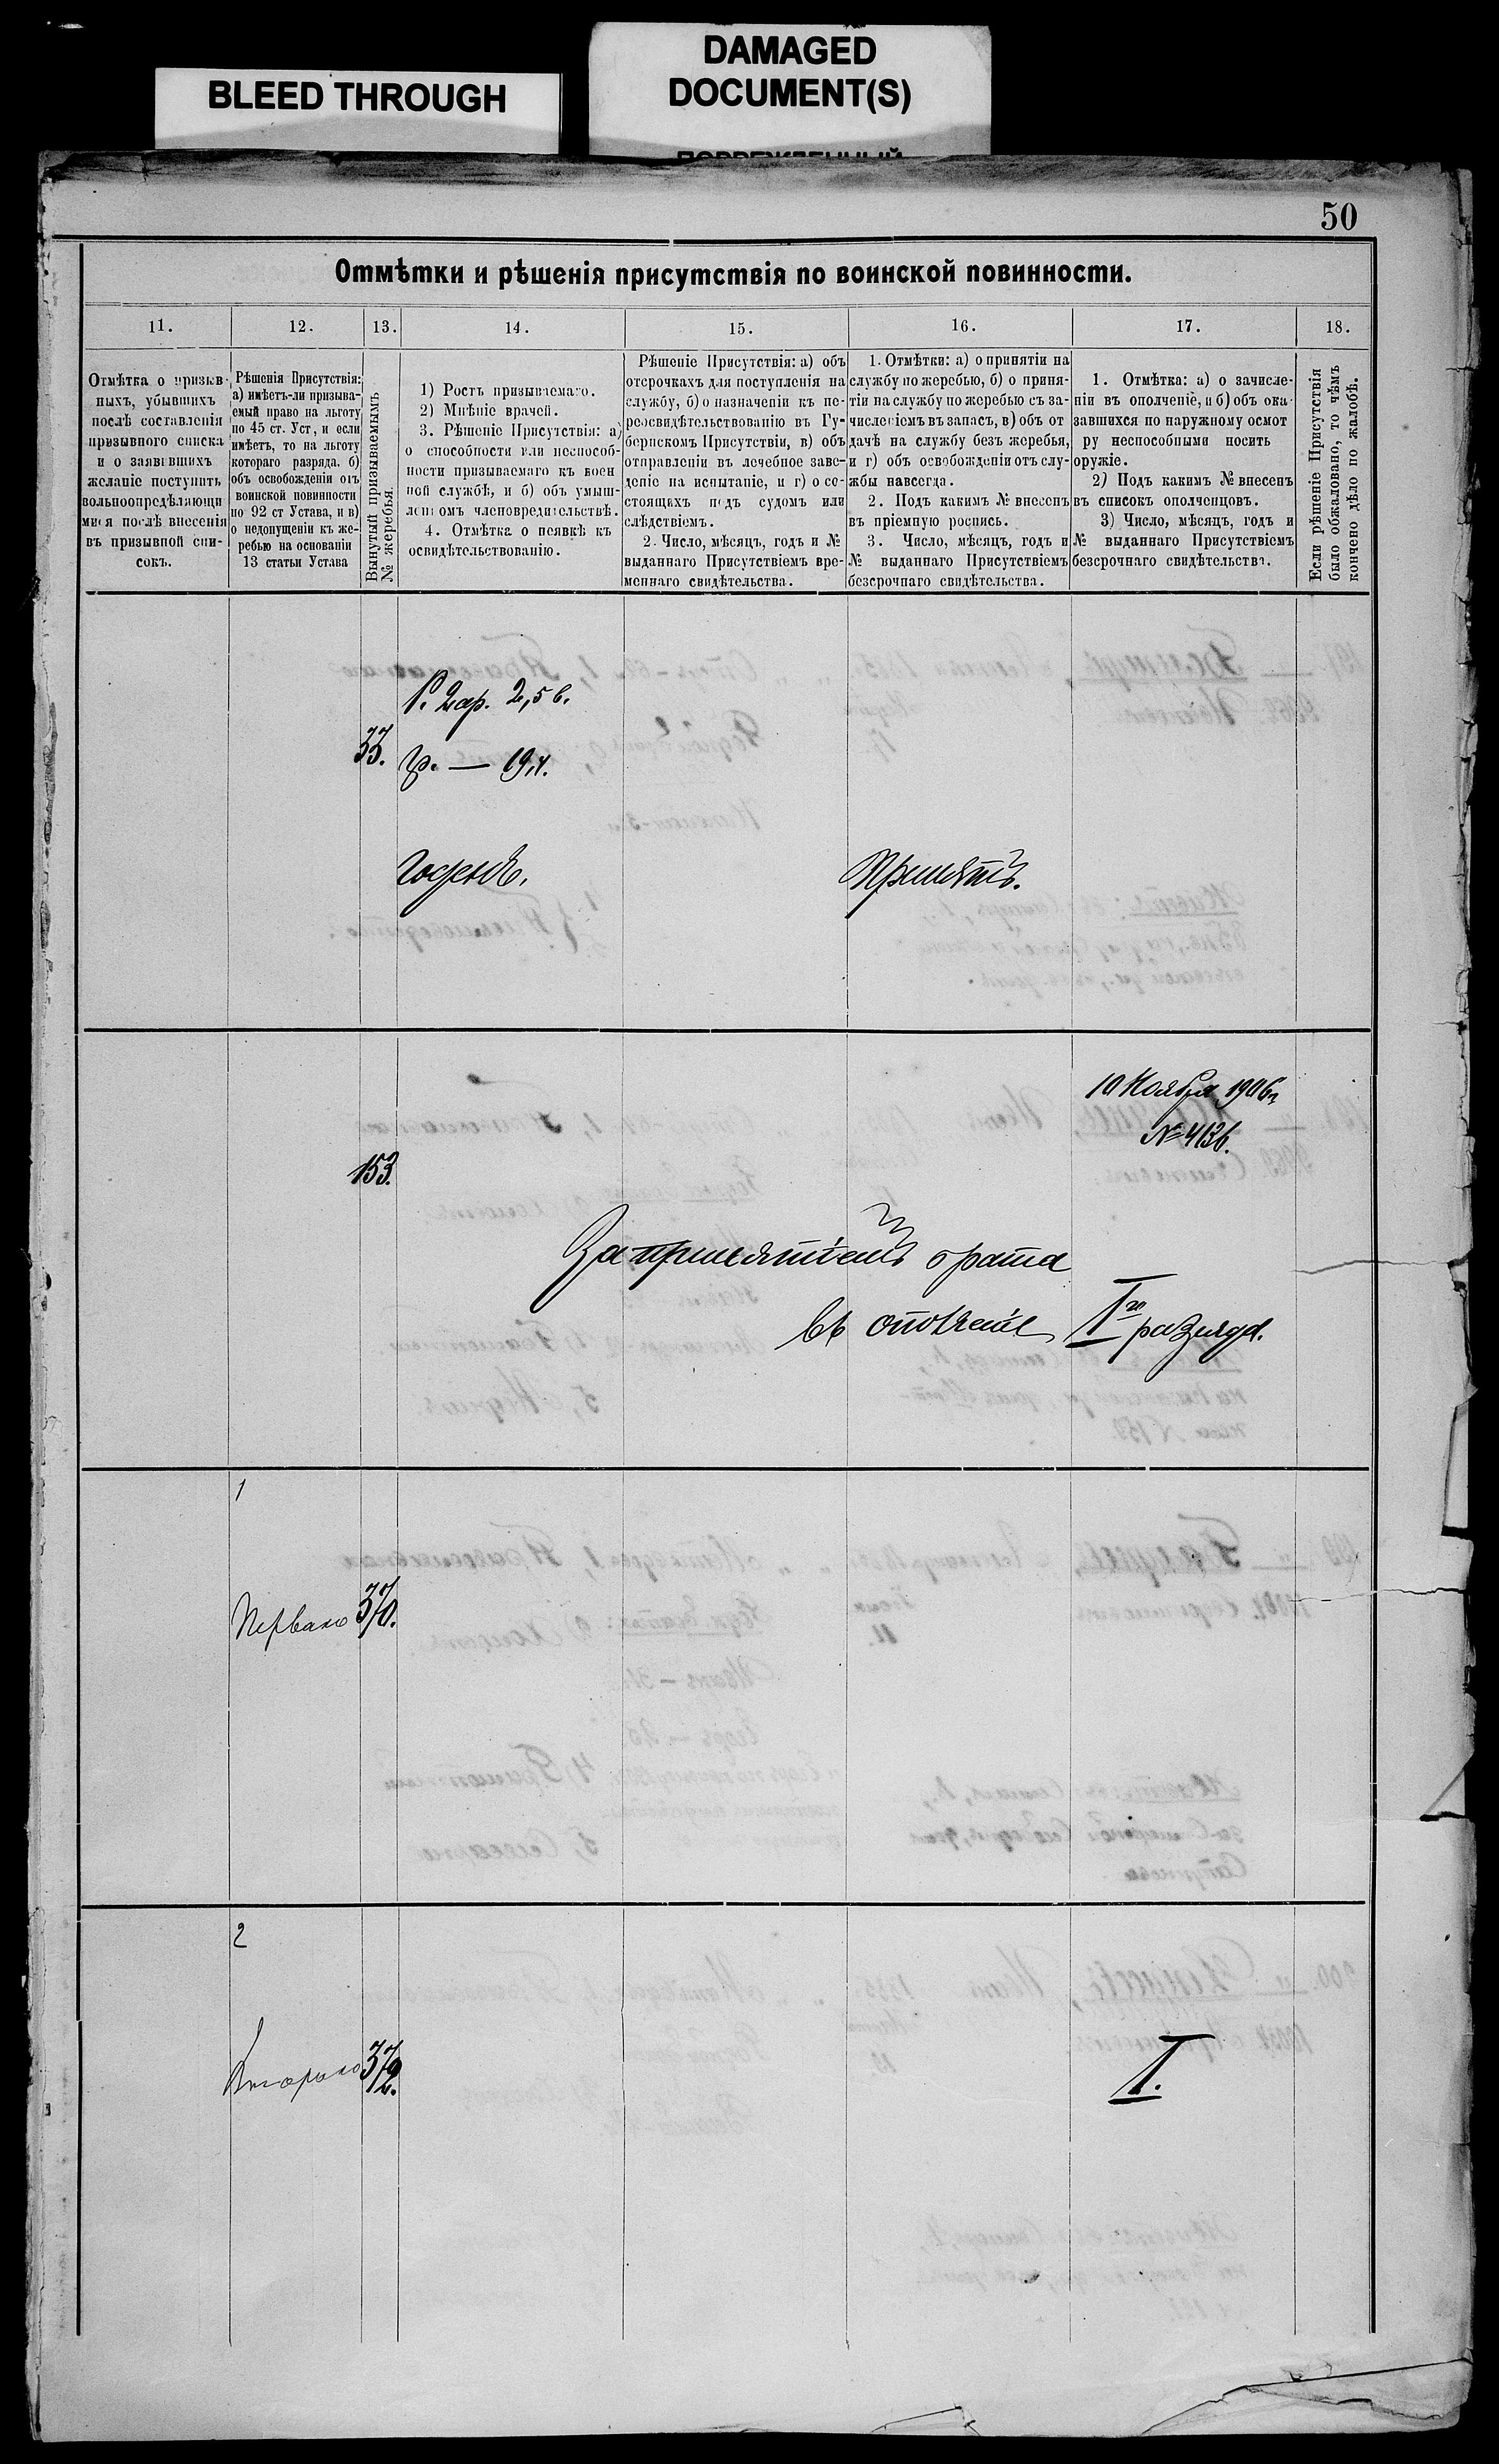 BLEED THROUGH
DAMAGED
DOCUMENT(S)
50
Отмѣтки и рѣшенія присутствія по воинской повинности.
11.
12.
13.
14.
15.
16.
17.
18.
Отмѣтка о призыв-
ныхъ, убывшихъ
послѣ составленія
призывного списка
и о заявившихъ
желаніе поступить
вольноопредѣляющи
мися послѣ внесенія
въ призывной спи-
сокъ.
Рѣшенія Присутствія:
а) имѣетъ-ли призыва-
емый право на льготу
по 45 ст. Уст, и если
имѣетъ, то на льготу
котораго разряда. б)
объ освобожденіи отъ
воинской повинности
по 92 ст Устава, и в)
о недопущеніи къ же-
ребью на основаніи
13 статьи Устава
Вынутый призываемымъ
№ жеребья.
1) Ростъ призываемаго.
2) Мнѣніе врачей.
3. Рѣшеніе Присутствія: а)
о способности или неспособ-
ности призываемаго къ воен
ной службѣ, и б) объ умыш-
ленномъ членовредительствѣ.
4. Отмѣтка о неявкѣ къ
освидѣтельствованію.
Рѣшеніе Присутствія: а) объ
отсрочкахъ для поступленія на
службу, б) о назначеніи къ пе-
реосвидѣтельствованію въ Гу-
бернскомъ Присутствіи, в) объ
отправленіи въ лечебное заве-
деніе на испытаніе, и г) о со-
стоящихъ подъ судомъ или
слѣдствіемъ.
2. Число, мѣсяцъ, годъ и №
выданнаго Присутствіемъ вре-
меннаго свидѣтельства.
1. Отмѣтки: а) о принятіи на
службу по жеребью, б) о приня-
тіи на службу по жеребью съ за-
численіемъ въ запасъ, в) объ от
дачѣ на службу безъ жеребья,
и г) объ освобожденіи отъ слу-
жбы навсегда.
2. Подъ какимъ № внесенъ
въ пріемную роспись.
3. Число, мѣсяцъ, годъ и
№ выданнаго Присутствіемъ
безсрочнаго свидѣтельства.
1. Отмѣтка: а) о зачисле-
ніи въ ополченіе, и б) объ ока-
завшихся по наружному осмот
ру неспособными носить
оружіе.
2) Подъ какимъ № внесенъ
въ списокъ ополченцовъ.
3) Число, мѣсяцъ, годъ и
№ выданнаго Присутствіемъ
безсрочнаго свидѣтельства.
Если рѣшеніе Присутствія
было обжаловано, то чѣмъ
кончено дѣло по жалобѣ.
Р. 2 ар. 2,5 в.
33.
Гр. — 19,4.
Годенъ.
Принятъ.
10 Ноября 1906 г.
№ 4136.
153.
За принятіемъ брата
въ ополченіе I го разряда.
1
Перваго
370.
2
Второго
372.
I.